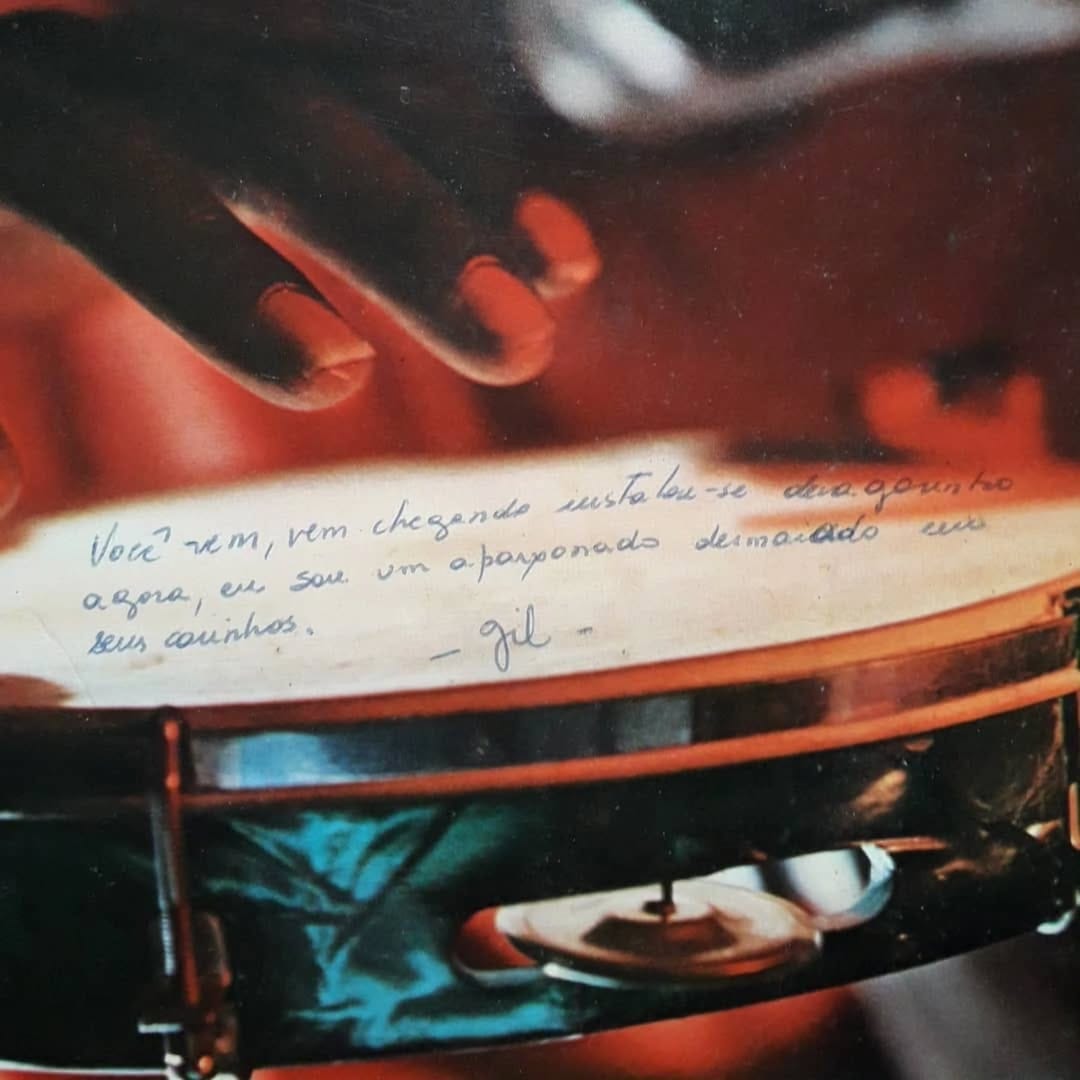 Você vem, vem chegando instalou-se devagarinho
agora, eu sou um aparxonado desmaiado em
seus carinhos.
- gil -